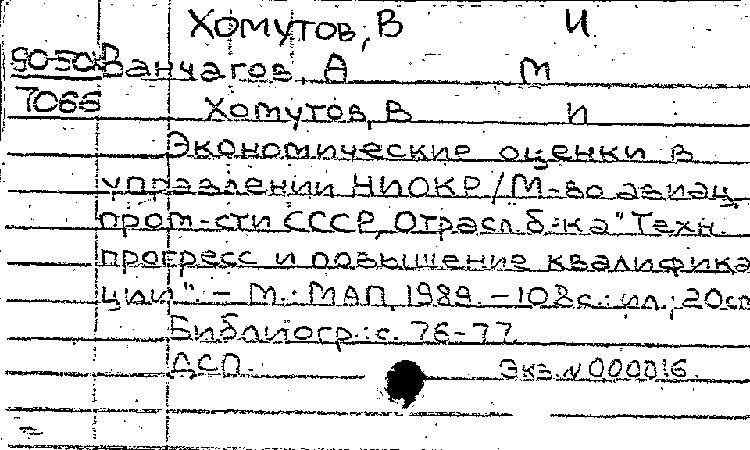 Хомутов, В И
90-50 Ванчагов, А М
7066 Хомутов, В И
Экономические оценки в
управлении НИОКР/М-во авиац.
пром-сти СССР, Отрасл. б-ка "Техн.
прогресс и повышение квалифика
ции". – М.: МАП, 1989. – 108 с.: ил.; 20 см
Библиогр.: с. 76-77
ДСП. Экз. N 000016.